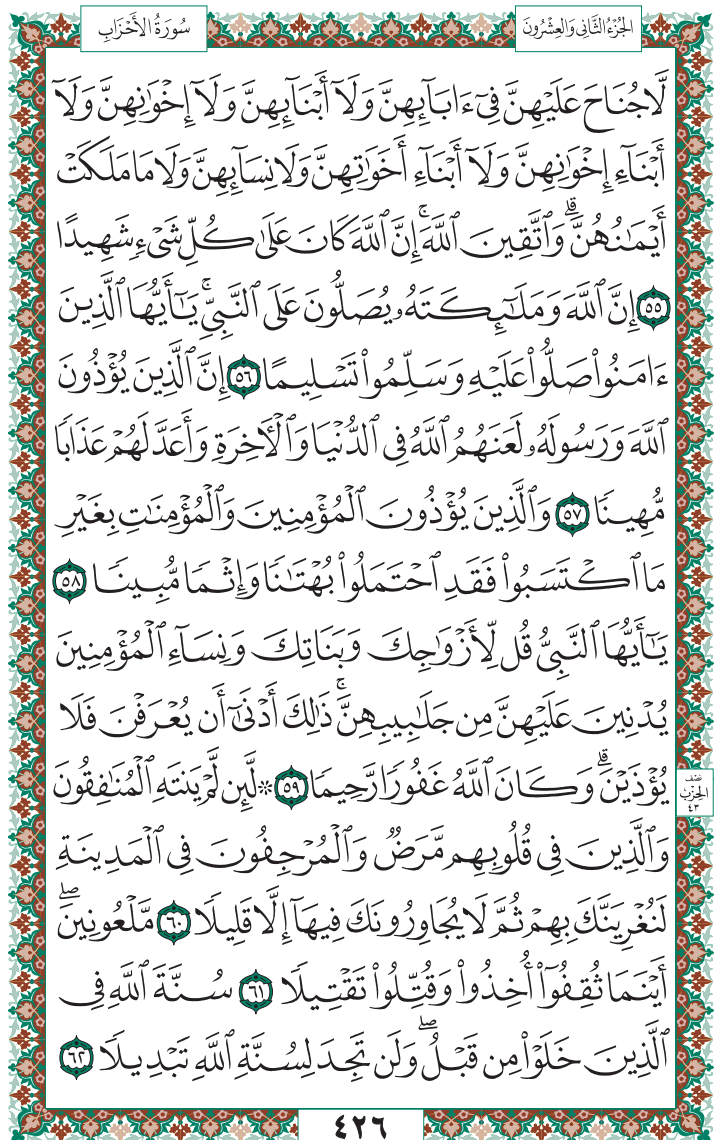 الجُزْءُ الثَّانِي وَالعِشْرُونَ
سُورَةُ الأَحْزَابِ
لَّا جُنَاحَ عَلَيْهِنَّ فِىٓ ءَابَآئِهِنَّ وَلَآ أَبْنَآئِهِنَّ وَلَآ إِخْوَٰنِهِنَّ وَلَآ
أَبْنَآءِ إِخْوَٰنِهِنَّ وَلَآ أَبْنَآءِ أَخَوَٰتِهِنَّ وَلَا نِسَآئِهِنَّ وَلَا مَا مَلَكَتْ
أَيْمَٰنُهُنَّۗ وَٱتَّقِينَ ٱللَّهَۚ إِنَّ ٱللَّهَ كَانَ عَلَىٰ كُلِّ شَىْءٍ شَهِيدًا
٥٥ إِنَّ ٱللَّهَ وَمَلَٰٓئِكَتَهُۥ يُصَلُّونَ عَلَى ٱلنَّبِىِّۚ يَٰٓأَيُّهَا ٱلَّذِينَ
ءَامَنُوا۟ صَلُّوا۟ عَلَيْهِ وَسَلِّمُوا۟ تَسْلِيمًا ٥٦ إِنَّ ٱلَّذِينَ يُؤْذُونَ
ٱللَّهَ وَرَسُولَهُۥ لَعَنَهُمُ ٱللَّهُ فِى ٱلدُّنْيَا وَٱلْـَٔاخِرَةِ وَأَعَدَّ لَهُمْ عَذَابًا
مُّهِينًا ٥٧ وَٱلَّذِينَ يُؤْذُونَ ٱلْمُؤْمِنِينَ وَٱلْمُؤْمِنَٰتِ بِغَيْرِ
مَا ٱكْتَسَبُوا۟ فَقَدِ ٱحْتَمَلُوا۟ بُهْتَٰنًا وَإِثْمًا مُّبِينًا ٥٨
يَٰٓأَيُّهَا ٱلنَّبِىُّ قُل لِّأَزْوَٰجِكَ وَبَنَاتِكَ وَنِسَآءِ ٱلْمُؤْمِنِينَ
يُدْنِينَ عَلَيْهِنَّ مِن جَلَٰبِيبِهِنَّۚ ذَٰلِكَ أَدْنَىٰٓ أَن يُعْرَفْنَ فَلَا
يُؤْذَيْنَۗ وَكَانَ ٱللَّهُ غَفُورًا رَّحِيمًا ٥٩ ۞ لَّئِن لَّمْ يَنتَهِ ٱلْمُنَٰفِقُونَ
نصف
الحزب
٤٣
وَٱلَّذِينَ فِى قُلُوبِهِم مَّرَضٌ وَٱلْمُرْجِفُونَ فِى ٱلْمَدِينَةِ
لَنُغْرِيَنَّكَ بِهِمْ ثُمَّ لَا يُجَاوِرُونَكَ فِيهَآ إِلَّا قَلِيلًا ٦٠ مَّلْعُونِينَۖ
أَيْنَمَا ثُقِفُوٓا۟ أُخِذُوا۟ وَقُتِّلُوا۟ تَقْتِيلًا ٦١ سُنَّةَ ٱللَّهِ فِى
ٱلَّذِينَ خَلَوْا۟ مِن قَبْلُۖ وَلَن تَجِدَ لِسُنَّةِ ٱللَّهِ تَبْدِيلًا ٦٢
٤٢٦